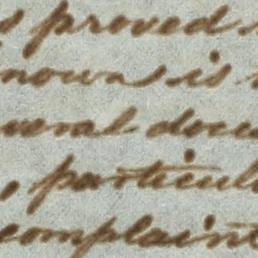 s proved
nown is
veral docu
, particul
complaint